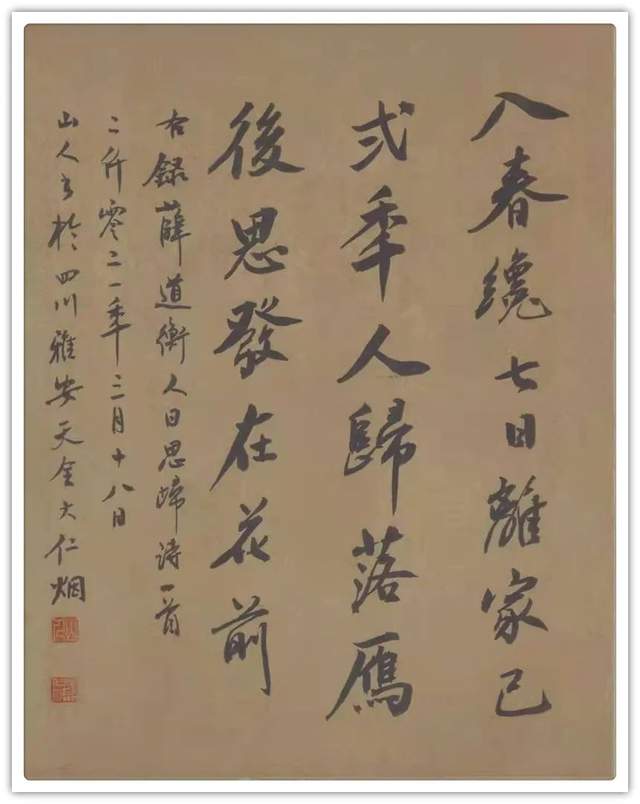 入春纔七日離家已
弍秊人歸落雁
後思發在花前
右録薛道衡人日思歸诗一首
二仟零二一秊三月十八日
山人书於四川雅安天全大仁烟